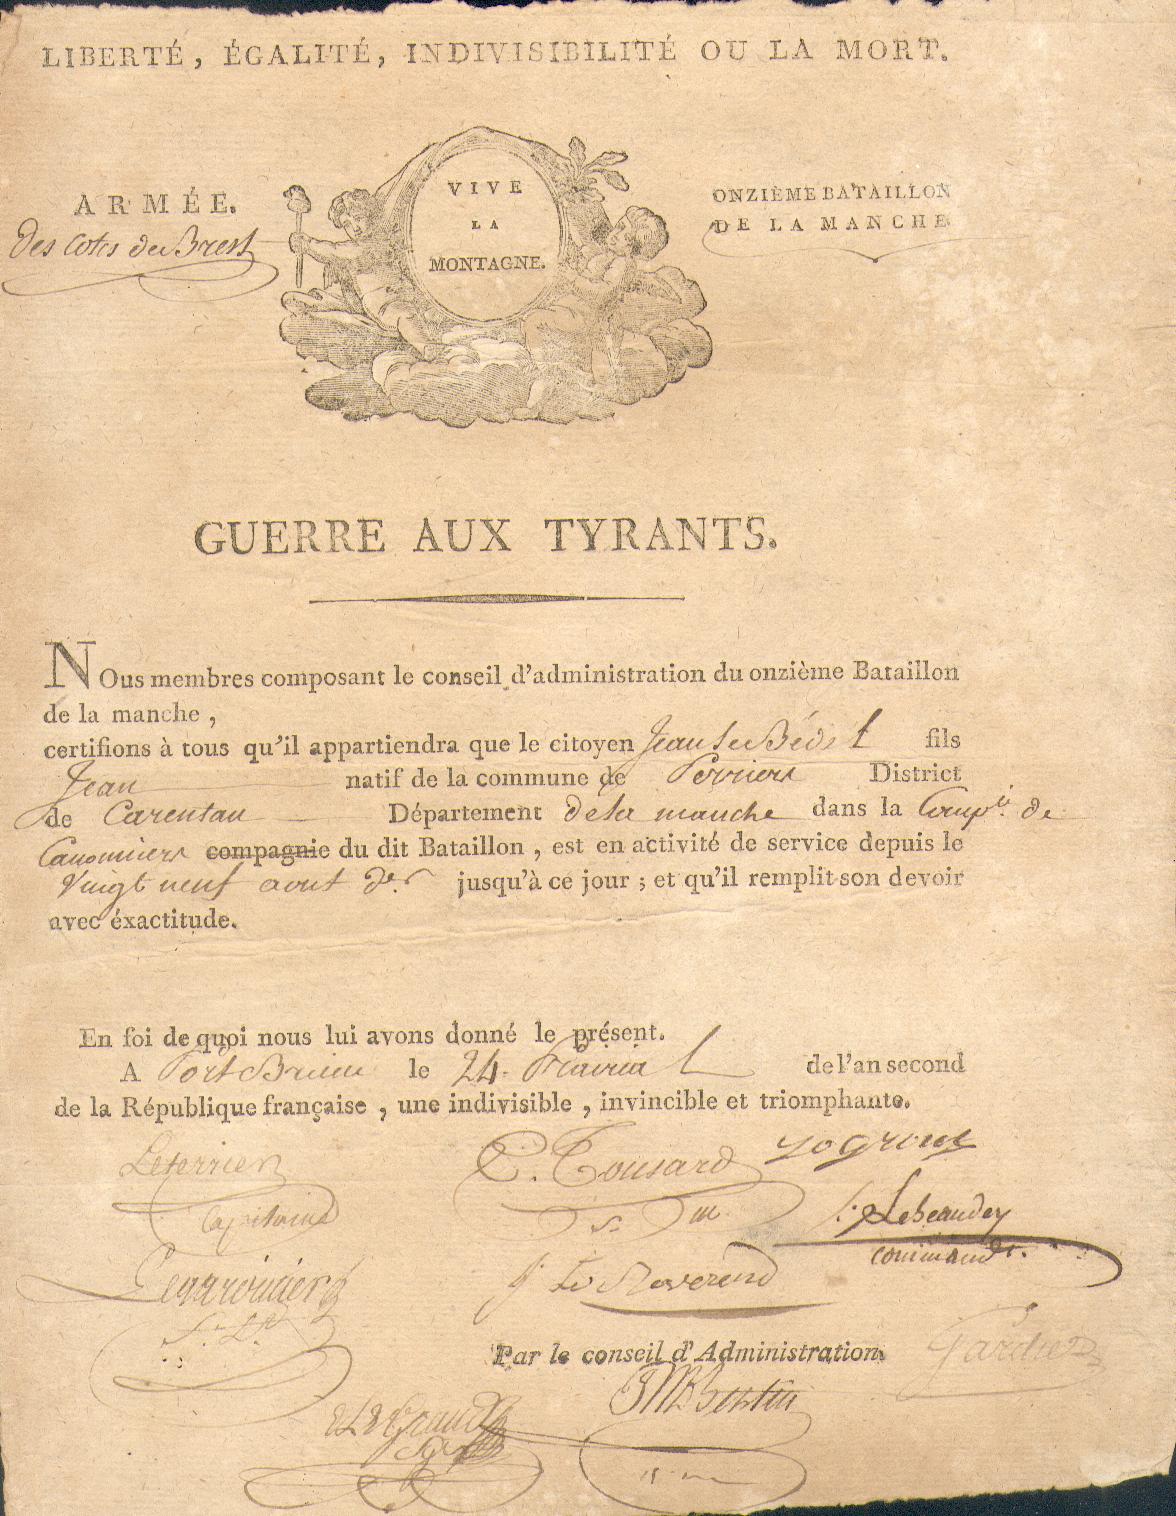 LIBERTÉ, ÉGALITÉ, INDIVISIBILITÉ OU LA MORT.
ARMÉE.
des Cotes de Brest
VIVE
LA
MONTAGNE.
ONZIÈME BATAILLON
DE LA MANCHE
GUERRE AUX TYRANTS.
NOus membres composant le conseil d'administration du onzième Bataillon
de la manche,
certifions à tous qu'il appartiendra que le citoyen Jean Le Bédel fils
Jean natif de la commune de Perriers District
de Carentan Département de la manche dans la Comp.ie de
Canonniers compagnie du dit Bataillon, est en activité de service depuis le
Vingt neuf aout d.er jusqu'à ce jour; et qu'il remplit son devoir
avec éxactitude.
En foi de quoi nous lui avons donné le présent.
A Port Brieuc le 24 Prairial de l'an second
de la République française, une indivisible, invincible et triomphante.
Leterrier
C. Tousard
Capitaine
Lebeaudey
command.t
J. Le Reverend
Par le conseil d'Administration.